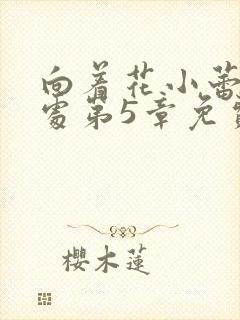 向着花小蕾
处第5章免
樱木莲